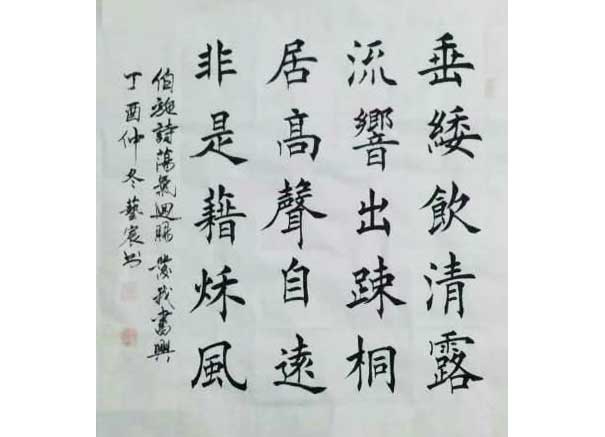 垂緌飲清露
流響出疎桐
居高聲自遠
非是藉秌風
伯施詩蕩氣迴腸發我書興
丁酉仲冬藝宸书